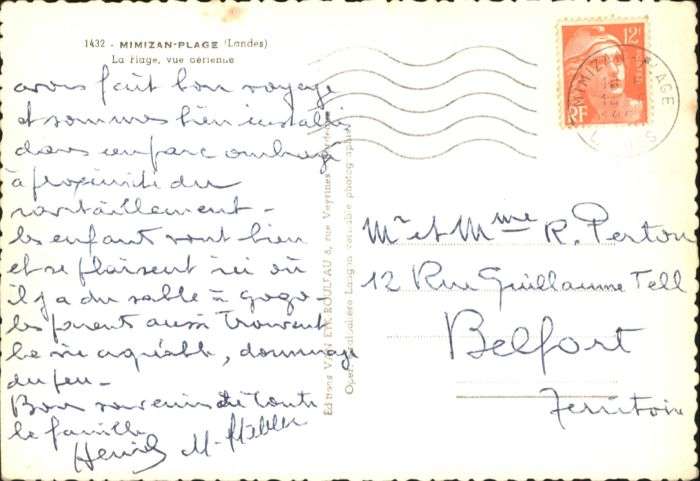 1432 - MIMIZAN-PLAGE (Landes)
La Plage, vue aérienne
avons fait bon voyage
et sommes bien installé
dans un parc ombragé
à proximité du
ravitaillement -
les enfants vont bien
et se plaisent ici où
il y a du sable à gogo -
les parents aussi trouvent
la vie agréable, dommage
du feu -
Bons souvenirs de toute
la famille
Henri M.
Editions VAN EYK-ROULEAU 8, rue Veyrines
Opér. Langon véritable photographie
12F
RF
MIMIZAN-PLAGE
Mr et Mme R. Perton
12 Rue Guillaume Tell
Belfort
Territoire